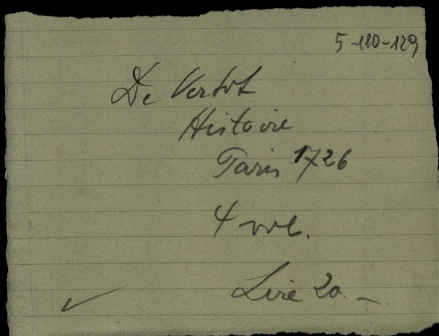 5-120-129
De Vertot
Histoire
Paris 1726
4 vol.
Lire 20.–